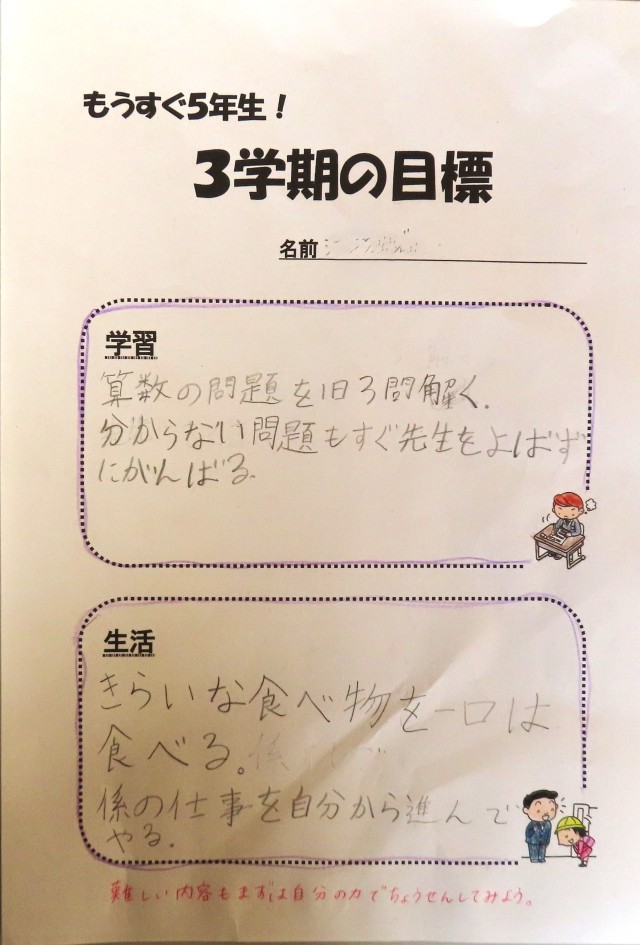 もうすぐ5年生！
3学期の目標
名前
学習
算数の問題を1日3問解く.
分からない問題もすぐ先生をよばず
にがんばる.
生活
きらいな食べ物を一口は
食べる。
係の仕事を自分から進んで
やる.
難しい内容もまずは自分の力でちょうせんしてみよう。